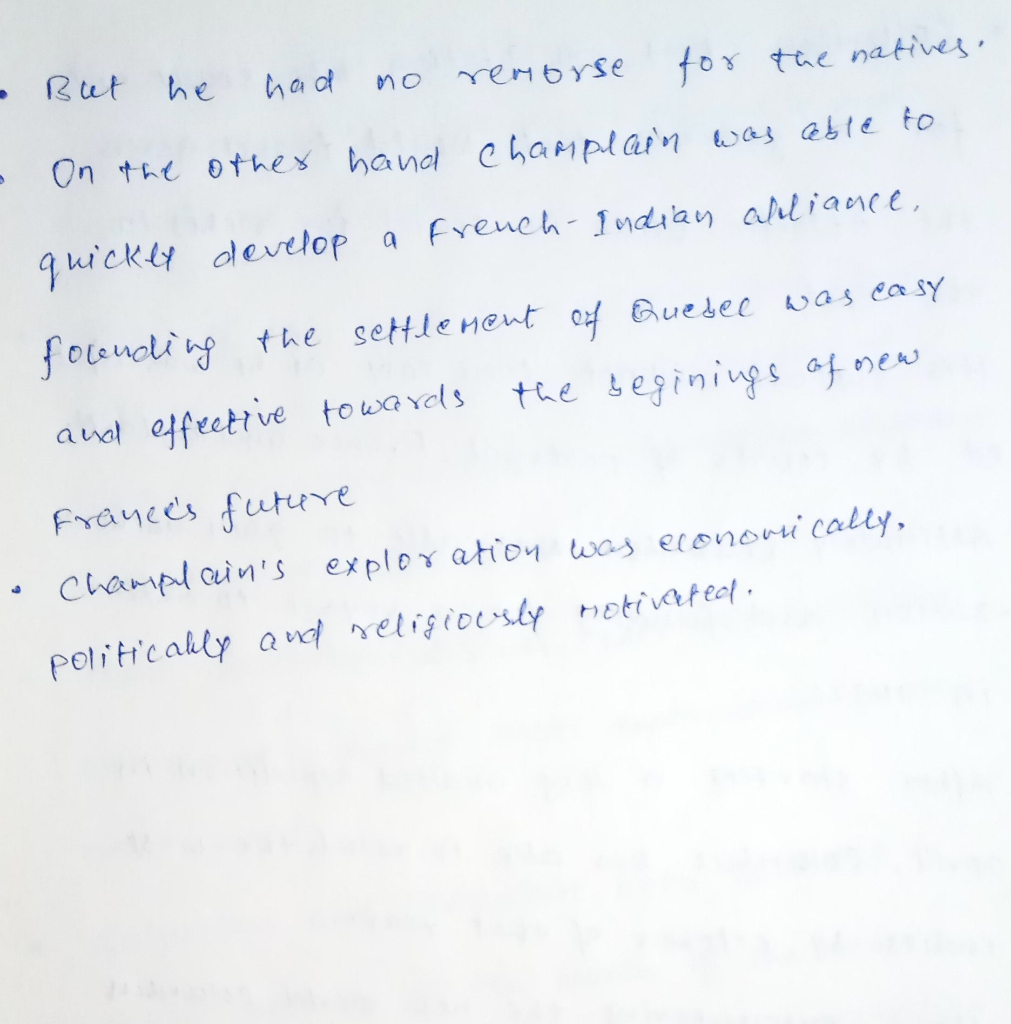 • But he had no remorse for the natives.
• On the other hand champlain was able to
quickly develop a French-Indian alliance.
founding the settlement of Quebec was easy
and effective towards the beginings of new
France's future
• Champlain's exploration was economically,
politically and religiously motivated.